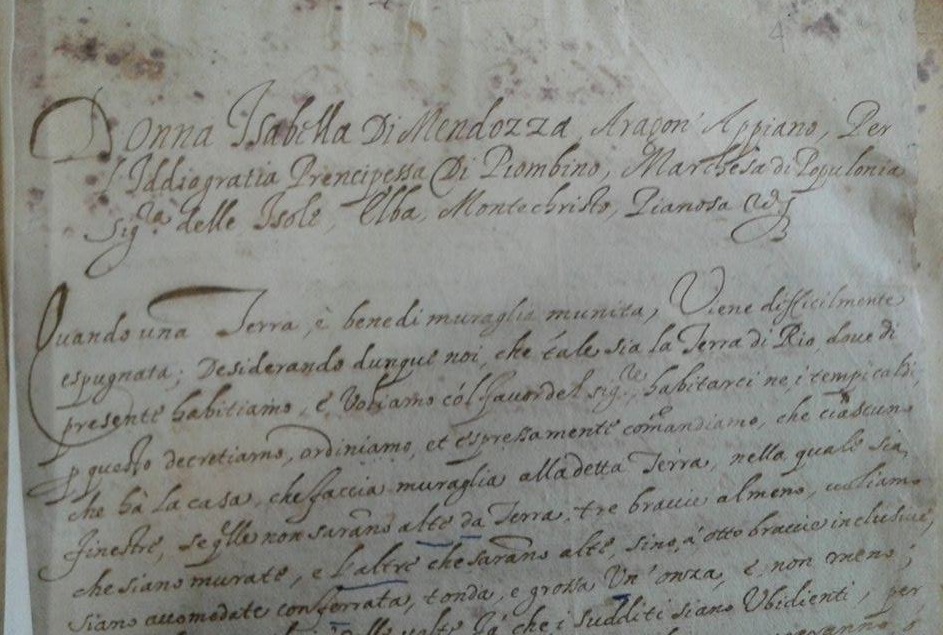 Donna Isabella Di Mendozza, Aragon' Appiano, Per
l'Iddiogratia Prencipessa Di Piombino, Marchesa di Populonia
Sig.ra delle Isole, Elba, Montechristo, Pianosa
Quando una Terra, è benedi muraglia munita, Viene difficilmente
espugnata; Desiderando dunque noi, che tale sia la Terra di Rio, dove di
presente habitiamo, e Vogliamo cól favor del sig.re, habitarci ne i tempi caldi,
p questo decretiamo, ordiniamo, et espressamente comandiamo, che ciascuno
che hà la casa, che faccia muraglia alla detta Terra, nella quale sia
finestre, se qlle non sarano alte da Terra, tre braccie almeno, vogliamo
che siano murate, e l'altre che sarano alte, sino, à otto braccie inclusive,
siano accomodate con ferrata, tonda, e grossa Un' onza, e non meno;
delle volte che i sudditi siano Ubidienti, per